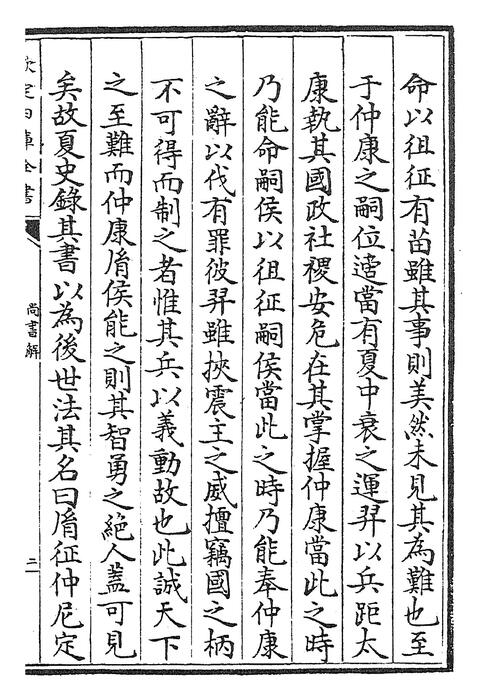 命以徂征有苗雖其事則美然未見其為難也至
于仲康之嗣位適當有夏中衰之運羿以兵距太
康執其國政社稷安危在其掌握仲康當此之時
乃能命嗣侯以徂征嗣侯當此之時乃能奉仲康
之辭以伐有罪彼羿雖挾震主之威擅竊國之柄
不可得而制之者惟其兵以義動故也此誠天下
之至難而仲康胤侯能之則其智勇之絶人蓋可見
矣故夏史錄其書以為後世法其名曰胤征仲尼定
欽定四庫全書
尚書解
三